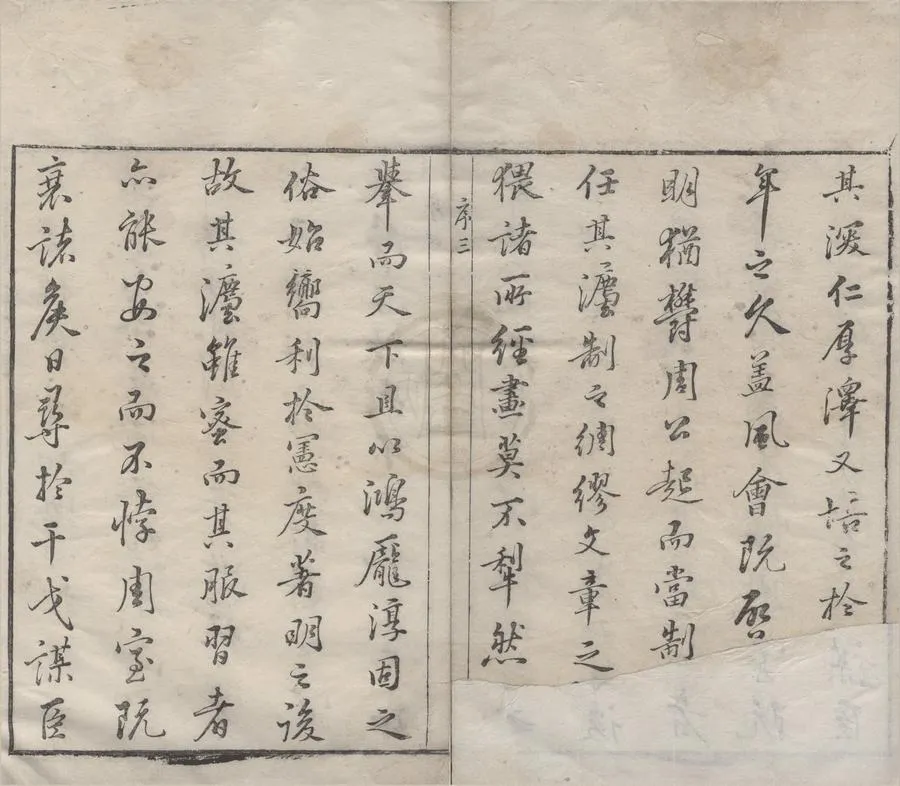 其深仁厚澤又培之於
年之久蓋風會既啓
明猶欝周公起而當制
任其灋制之綢繆文章之
猥諸所經畫莫不犁然
序三
舉而天下且以鴻龎淳固之
俗始嚮利於憲度著明之後
故其灋雖密而其服習者
亦能安之而不悖周室既
衰諸矦日尋於干戈謀臣